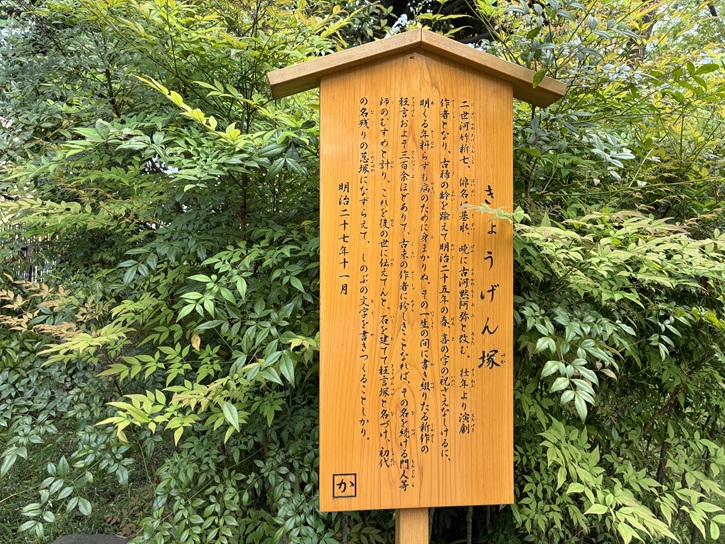 きょうげん塚
二世河竹新七、俳名は基水、晩に古河黙阿弥と改む。壮年より演劇
作者となり、古稀の齢を踰えて明治二十五年の春、喜の字の祝さえなしけるに、
明くる年料らずも病のために身まかりぬ。その一生の間に書き綴りたる新作の
狂言およそ三百余ほどありて、古来の作者に珍しきことなれば、その名を続ける門人等
師のむすめと計り、これを後の世に伝えてんと、石を建てて狂言塚と名づけ、初代
の名残りの塚になずらえて、しのぶの文字を書きつくることしかり。
明治二十七年十一月
か